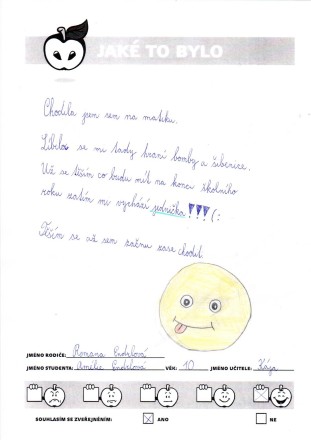 JAKÉ TO BYLO
Chodila jsem sem na matiku.
Líbila se mi tady hraní bomby a šibenice.
Už se těším co budu mít na konci školního
roku zatím mi vychází jednička !!! (:
Těším se až sem začnu zase chodit.
JMÉNO RODIČE: Romana
JMÉNO STUDENTA: Amélie VĚK: 10 JMÉNO UČITELE: Kája
SOUHLASÍM SE ZVEŘEJNĚNÍM: ANO NE